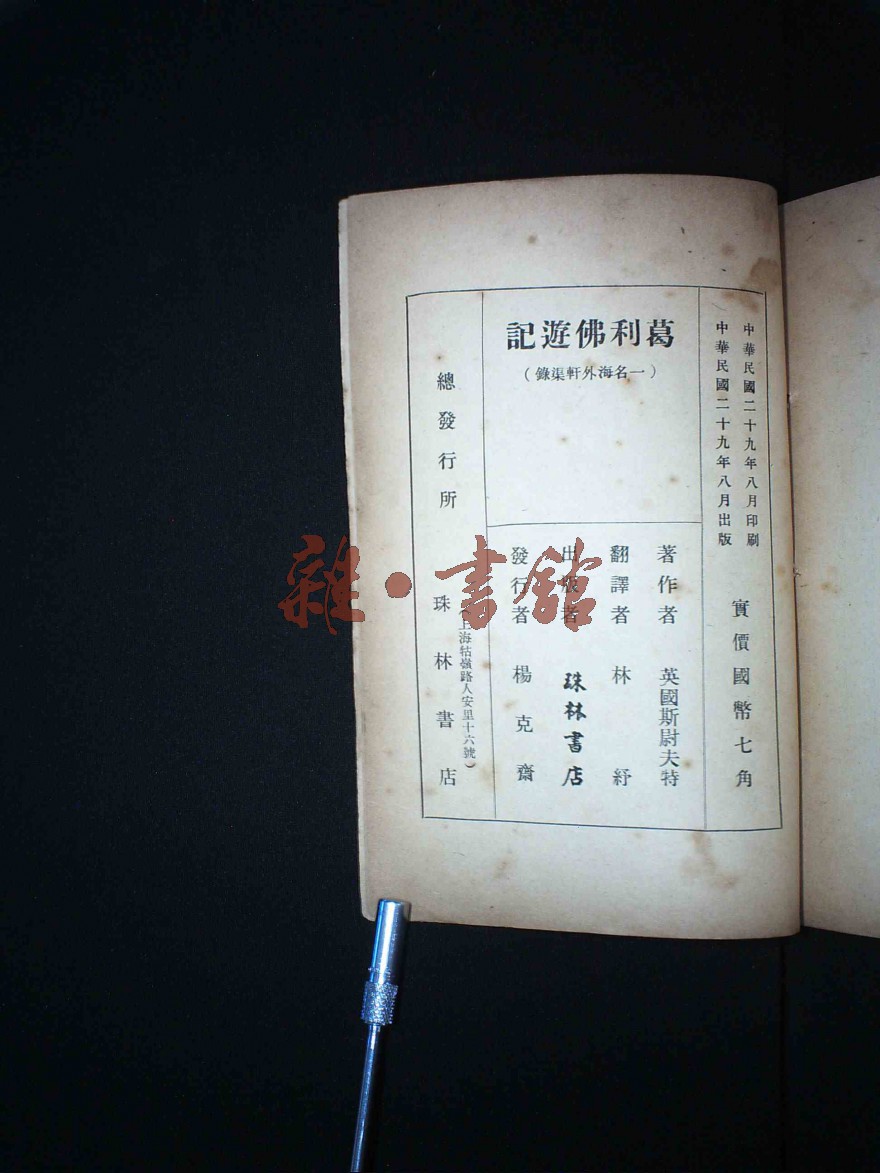 中華民國二十九年八月印刷
中華民國二十九年八月出版
實價國幣七角
葛利佛遊記
（一名海外軒渠錄）
著作者 英國斯尉夫特
翻譯者 林紓
出版者 珠林書店
發行者 楊克齋
總發行所 珠林書店
（上海牯嶺路人安里十六號）
雜·書館